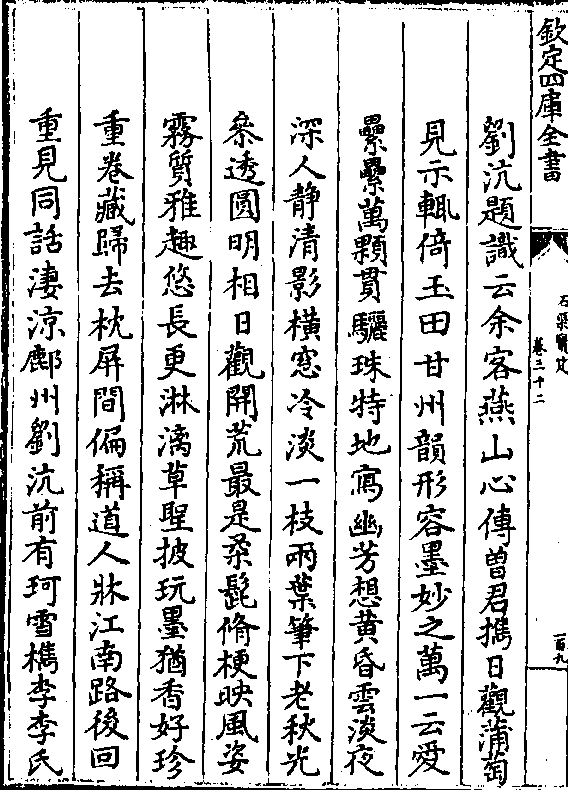 欽定四庫全書
石渠寶笈
卷三十二
一百九
劉沆題識云余客燕山心傳曽君擕日觀蒲萄
見示輙倚玉田甘州韻形容墨妙之萬一云愛
纍纍萬顆貫驪珠特地寫幽芳想黄昏雲淡夜
深人静清影横窓冷淡一枝兩葉筆下老秋光
叅透圓明相日觀開荒最是柔髭脩梗映風姿
霧質雅趣悠長更淋漓草聖披玩墨猶香好珍
重卷藏歸去枕屏間偏稱道人牀江南路後回
重見同話淒涼鄜州劉沆前有珂雪檇李李氏